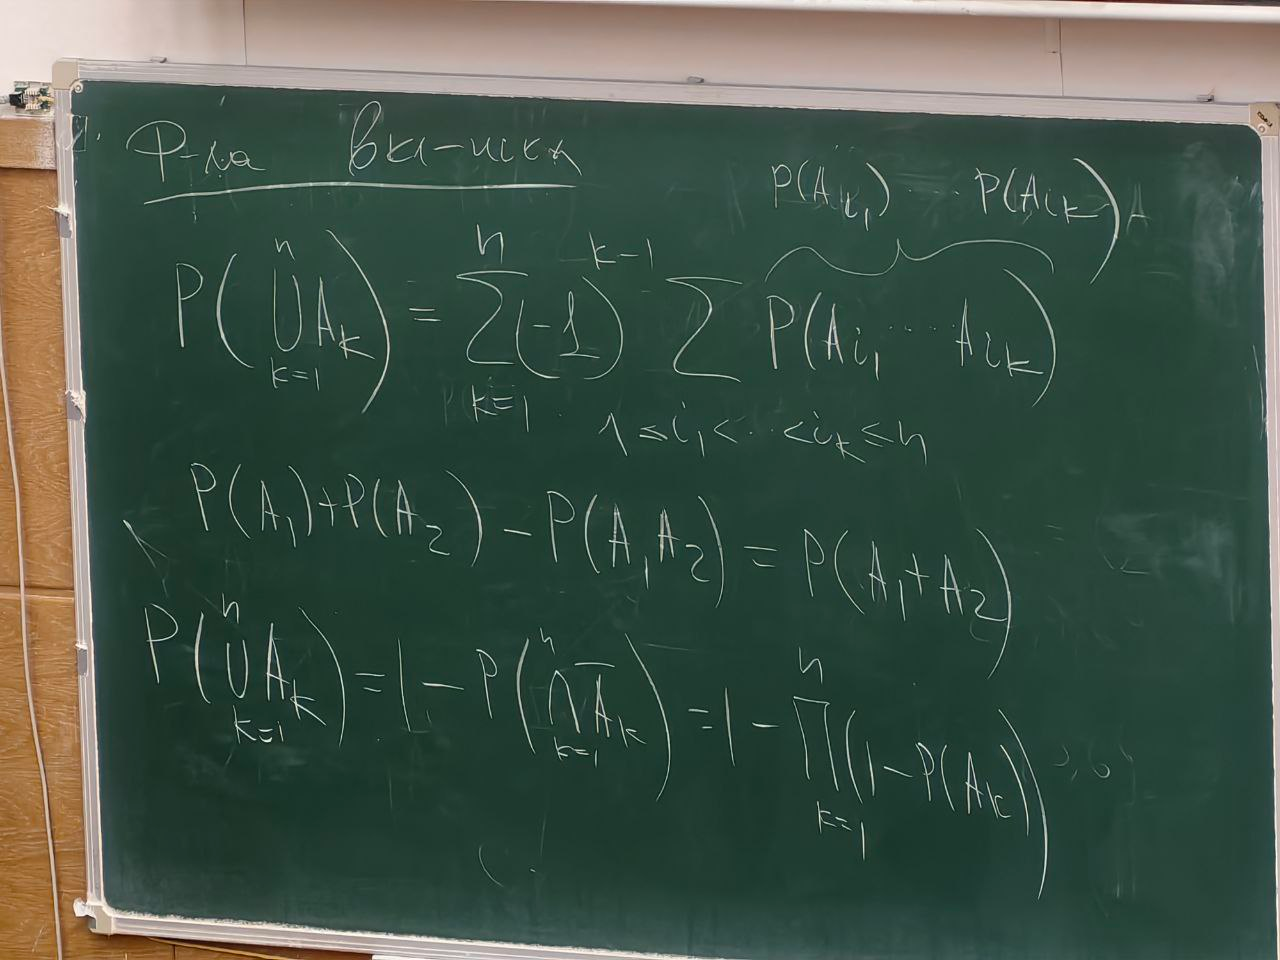 Ф-ла вкл-искл
P(A_{i_1}) ... P(A_{i_k})
P(⋃_{k=1}^{n} A_k) = ∑_{k=1}^{n} (-1)^{k-1} ∑_{1≤i_1<...<i_k≤n} P(A_{i_1} .... A_{i_k})
P(A_1)+P(A_2) - P(A_1A_2) = P(A_1+A_2)
P(⋃_{k=1}^{n} A_k) = 1 - P(⋂_{k=1}^{n} \overline{A_k}) = 1 - ∏_{k=1}^{n} (1-P(A_k))